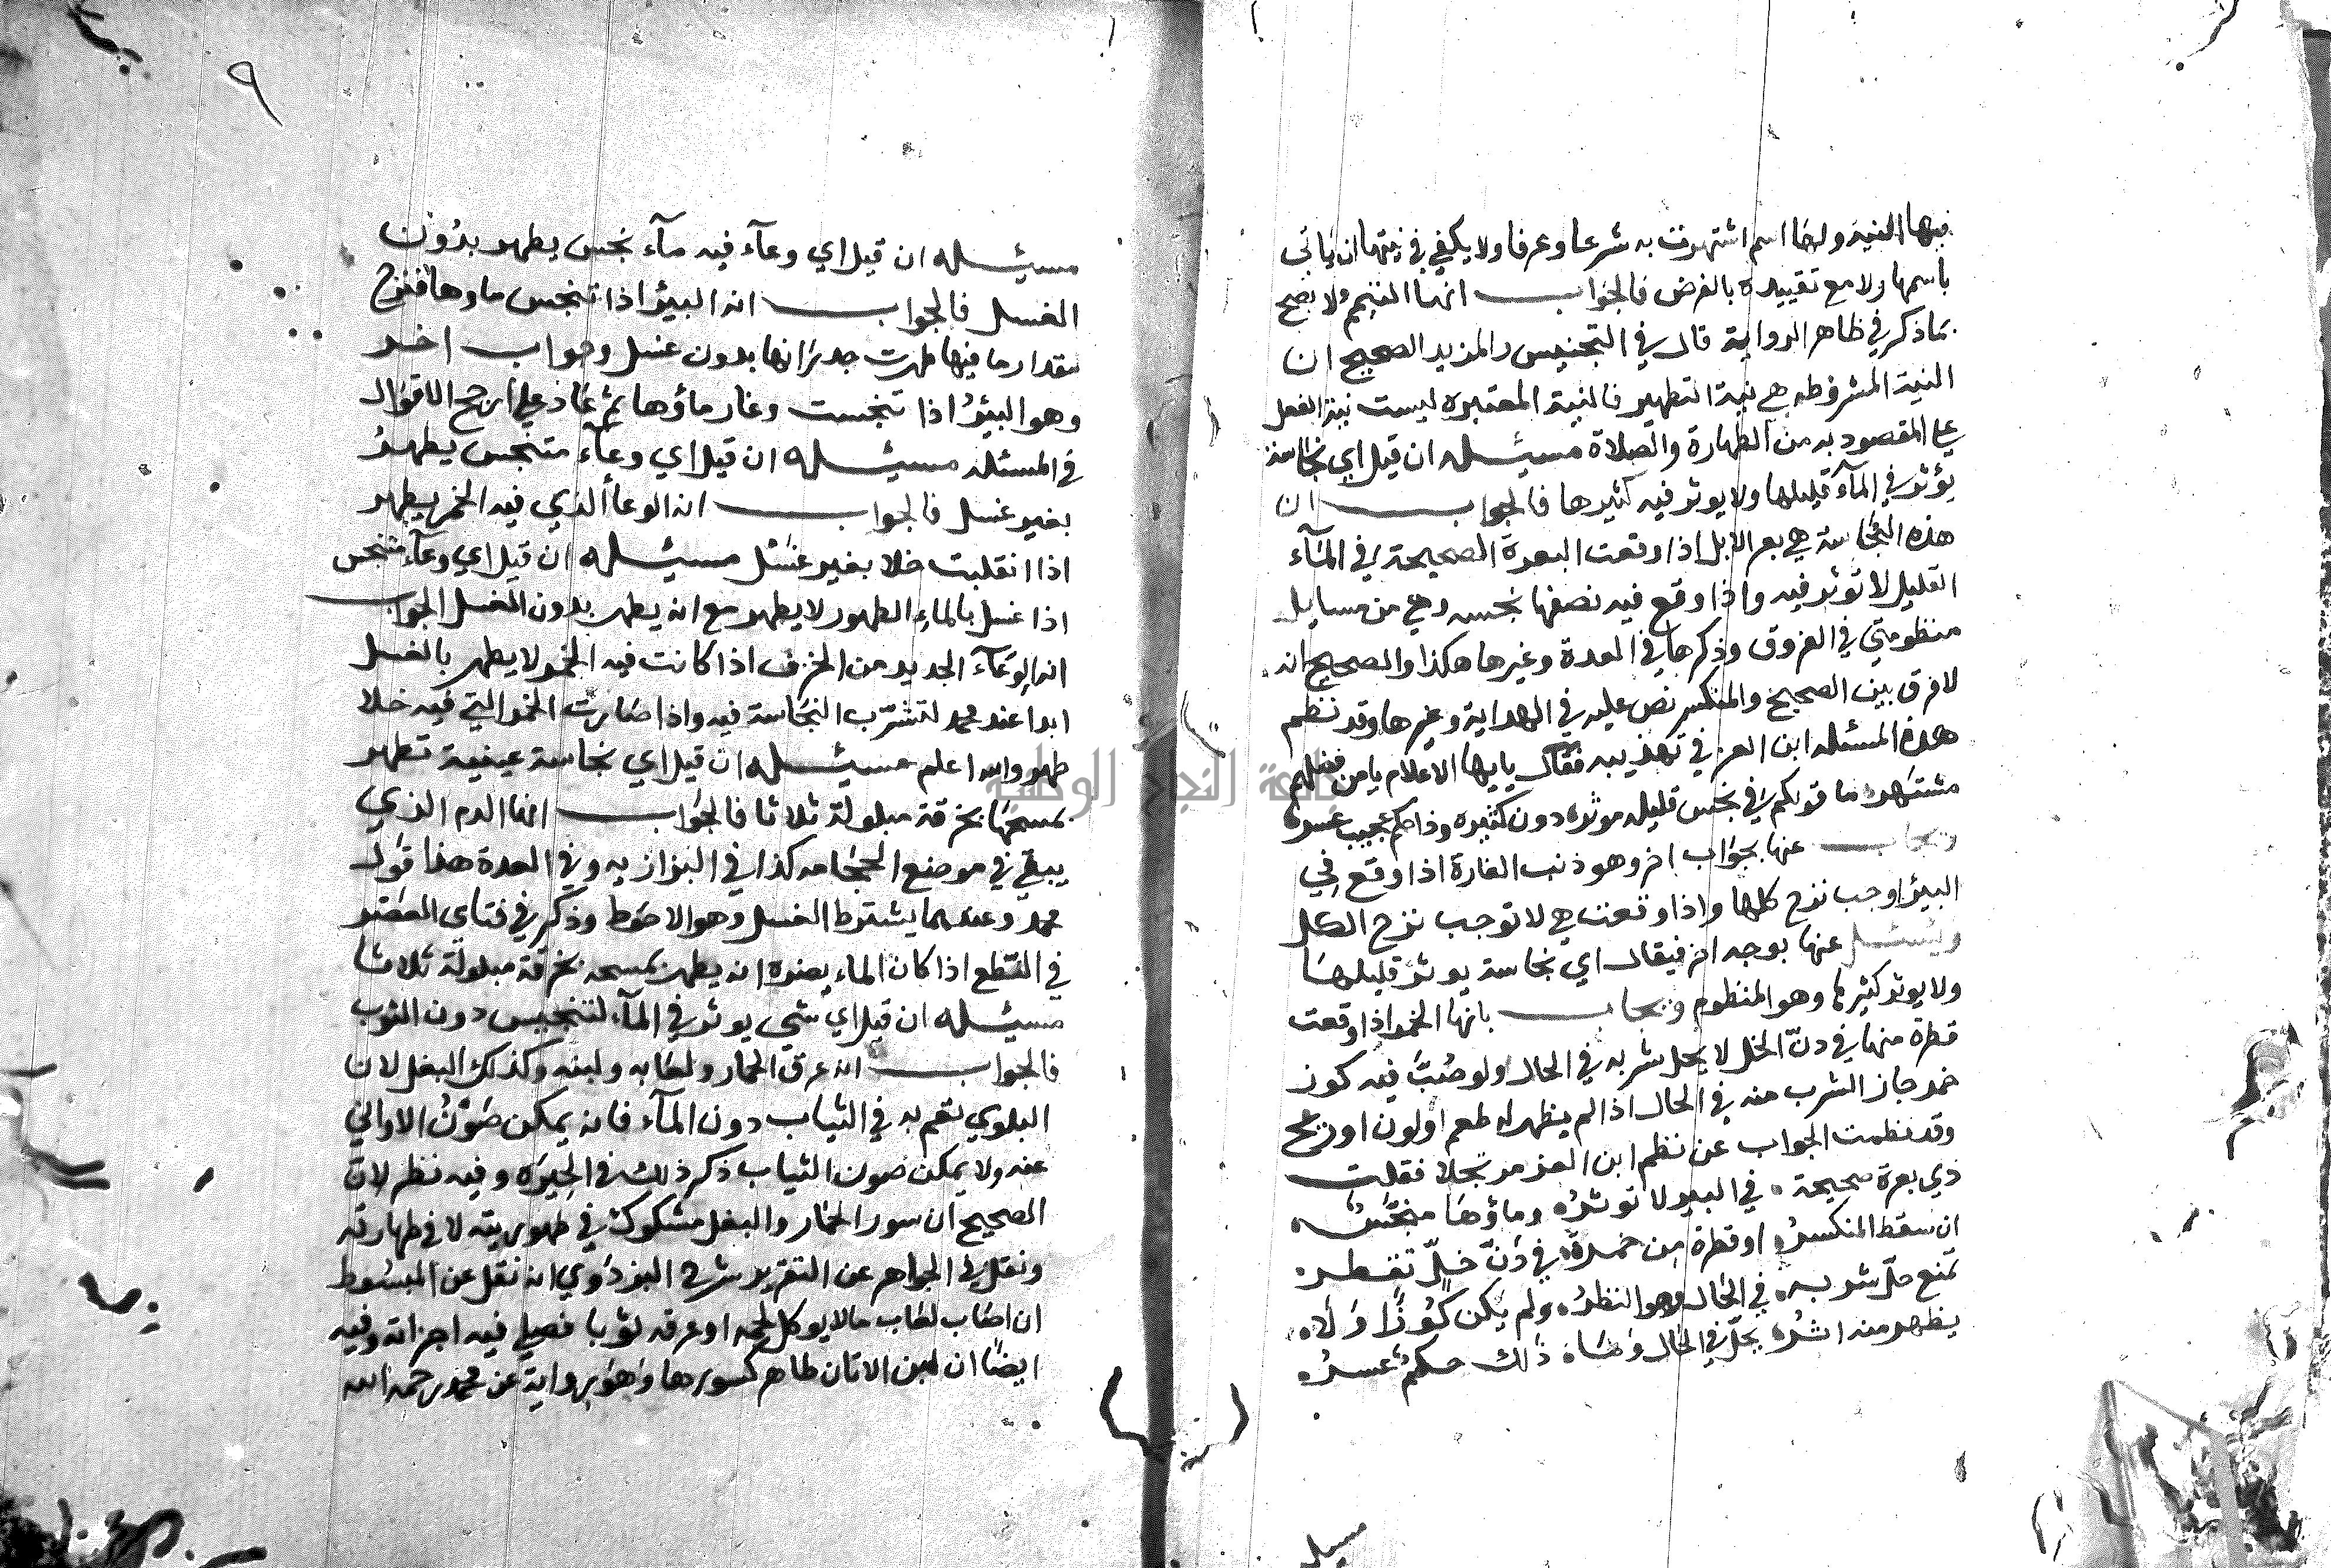 فيها النية ولها اسم اشتهرت به شرعا وعرفا ولا يكفي في نيتها ان ياتى
باسمها ولا مع تقييده بالفرض فالجواب انها التيمم ولا يصح
بما ذكر في ظاهر الرواية قال في التجنيس والمزيد الصحيح ان
النية المشروطه هي نية التطهير فالنية المعتبره ليست نية الفعل
على المقصود به من الطهارة والصلاة مسئله ان قيل اي نجاسة
يؤثر في المآء قليلها ولا يوثر فيه كثيرها فالجواب ان
هذه النجاسة هي بعر الابل اذا وقعت البعرة الصحيحة في المآء
القليل لا توثر فيه واذا وقع فيه نصفها نجسه وهي من مسايل
منظومتي في الفروق وذكرها في العدة وغيرها هكذا والصحيح انه
لا فرق بين الصحيح والمنكسر نص عليه في الهداية وغيرها وقد نظم
هذه المسئله ابن العز في تهذيبه فقال يايها الاعلام يا من فضلهم
مشتهر ما قولكم في نجس قليله موثره دون كثيره وذا حكم عجيب عسره
ويجاب عنها بجواب اخر وهو ذنب الفارة اذا وقع في
البيؤ اوجب نزح كلها واذا وقعت هي لا توجب نزح الكل
ويسئل عنها بوجه اخر فيقال اي نجاسة يوثر قليلها
ولا يوثر كثيرها وهو المنظوم ويجاب بانها الخمر اذا وقعت
قطرة منها في دنّ الخل لا يحل شربه في الحال ولو صُبَّ فيه كوز
خمر جاز الشرب منه في الحال اذا لم يظهر له طعم او لون او ريح
وقد نظمت الجواب عن نظم ابن العز مرتجلا فقلت
ذي بعرة صحيحة ۰ في البير لا توثرُه وماؤها منجَّسُه
ان سقط المنكسرُه او قطرة مِن خمرةٍ في دَنّ خلّ تقطره
تمنع حلّ شربه في الحال وهو النظرُه ولم يكن كُوزًا وَلاه
يظهر منه اثرُه يحلّ في الحال وهاه ذلك حكمٌ عسرُه
مسئله
٩
مسئله ان قيل اي وعآء فيه مآء نجس يطهر بدُون
الغسل فالجواب انه البيؤ اذا تنجس ماوها فنزح
مقدار ما فيها طهرت جدرانها بدون غسل وجواب اخر
وهو البيؤُ اذا تنجست وغار ماؤها ثم عاد على ارجح الاقوال
في المسئله مسئله ان قيل اي وعآء متنجس يطهرُ
بغير غسل فالجواب انه الوعأ الذي فيه الخمر يطهر
اذا انقلبت خلا بغير غسْل مسئله ان قيل اي وعآء متنجس
اذا غسل بالماءِ الطهور لا يطهر مع انه يطهر بدون الغسل الجواب
انه الوعآء الجديد من الخزف اذا كانت فيه الخمر لا يطهر بالغسل
ابدا عند محمد لتشرّب النجاسة فيه واذا صارت الخمر التي فيه خلا
طهر والله اعلم مسئله ان قيل اي نجاسة عينية تطهر
بمسحها بخرقة مبلولة ثلاثا فالجواب انها الدم الذي
يبقي في موضع الحجامه كذا في البزازيه وفي العدة هذا قول
محمد وعندهما يشترط الغسل وهو الاحوط وذكر في فتاى
في القطع اذا كان الماء يضره انه يطهر بمسحه بخرقة مبلولة ثلاثا
مسئله ان قيل اي شي يوثر في المآء التنجيس دون الثوب
فالجواب انه عرق الحمار ولعابه ولبنه وكذلك البغل لان
البلوي تعم به في الثياب دون المآء فانه يمكن صَوْنُ الاواني
عنه ولا يمكن صون الثياب ذكر ذلك في الحِيَرَه وفيه نظر لان
الصحيح ان سور الحمار والبغل مشكوك في طهوريته لا في طهارته
ونقل في الجواهر عن التقرير شرح البزدَوي انه نقل عن المبسُوط
ان اصَاب لعَاب مالا يوكل لحمه او عرقه ثوبا فصلي فيه اجزاته وفيه
ايضًا ان لبن الاتان طاهر كسورها وَهوَ رواية عن محمد رحمه الله
جامعة النجاح الوطنية